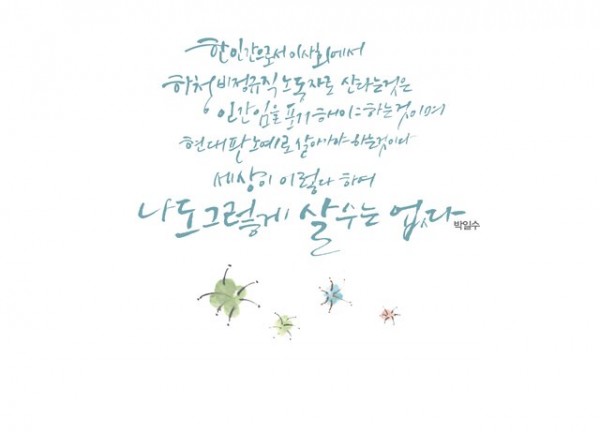 한 인간으로서 이 사회에서
하청 비정규직 노동자로 산다는 것은
인간임을 포기해야 하는 것이며
현대판 노예로 살아가야 하는 것이다
세상이 이렇다 하여
나도 그렇게 살 수는 없다
박일수